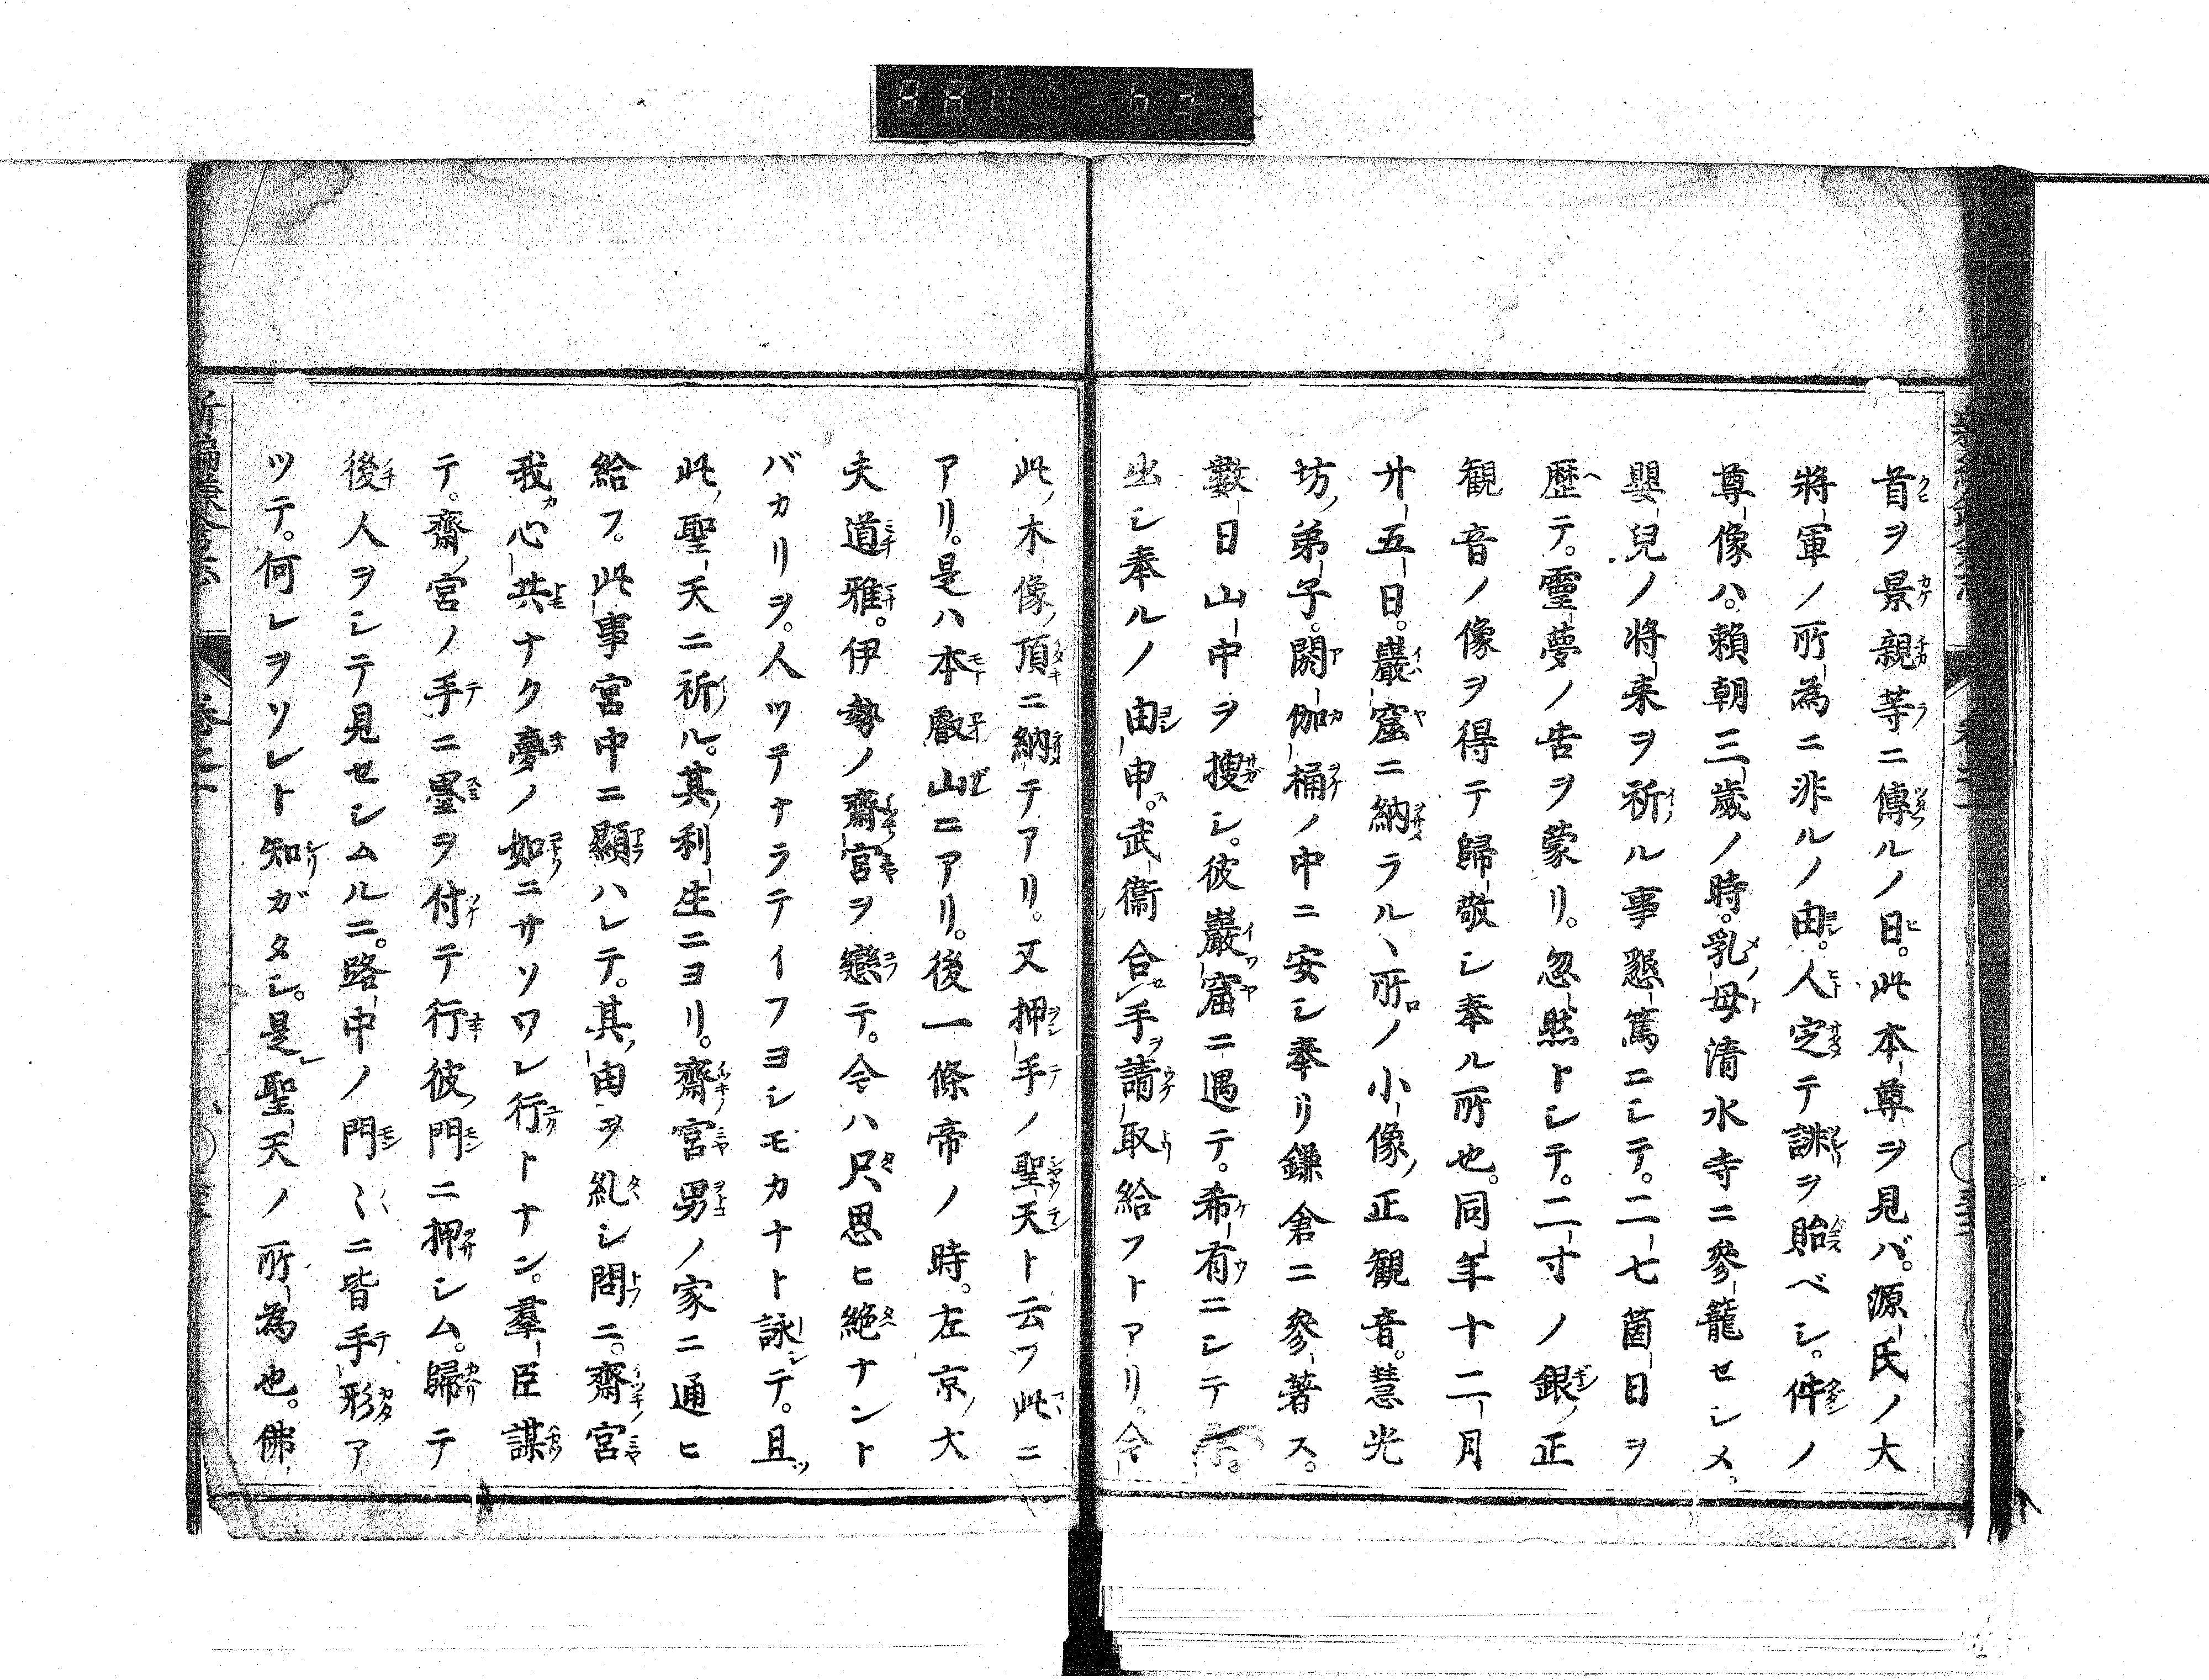 首ヲ景親等ニ傳ルノ日。此本尊ヲ見バ。源氏ノ大
將軍ノ所為ニ非ルノ由。人定テ誹ヲ貽ベシ。件ノ
尊像ハ。賴朝三歲ノ時。乳母清水寺ニ參籠セシメ。
嬰兒ノ将来ヲ祈ル事懇篤ニシテ。二七箇日ヲ
歴テ。靈夢ノ告ヲ蒙リ。忽然トシテ。二寸ノ銀ノ正
観音ノ像ヲ得テ歸敬シ奉ル所也。同年十二月
廾五日。巖窟ニ納ラルヽ所ノ小像ノ正観音。慧光
坊ノ弟子。閼伽桶ノ中ニ安シ奉リ鎌倉ニ參著ス。
數日山中ヲ搜シ。彼巖窟ニ遇テ。希有ニシテ
出シ奉ルノ由申。武衞合手ヲ請取給フトアリ。今
此ノ木像ノ頂ニ納テアリ。又押手ノ聖天ト云フ此ニ
アリ。是ハ本叡山ニアリ。後一條帝ノ時。左京ノ大
夫道雅。伊勢ノ齋宮ヲ戀テ。今ハ只思ヒ絶ナント
バカリヲ。人ツテナラテイフヨシモカナト詠シテ。且ツ
此ノ聖天ニ祈ル。其ノ利生ニヨリ。齋宮男ノ家ニ通ヒ
給フ。此事宮中ニ顯ハレテ。其ノ由ヲ糺シ問ニ。齋宮
我カ心共ナク夢ノ如ニサソワレ行トナン。羣臣謀
テ。齋ノ宮ノ手ニ墨ヲ付テ行彼ノ門ニ押シム。歸テ
後人ヲシテ見セシムルニ。路中ノ門〻ニ皆手形ア
ツテ。何レヲソレト知ガタシ。是レ聖天ノ所為也。佛